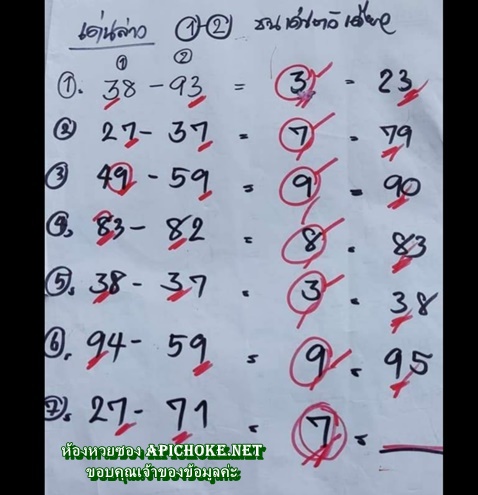 เด่นล่าง ①-② ชนเด่นตัวเดียว
① ②
①. 38 - 93 = 3 = 23
② 27 - 37 = 7 = 79
③ 49 - 59 = 9 = 90
④. 83 - 82 = 8 = 83
⑤. 38 - 37 = 3 = 38
⑥. 94 - 59 = 9 = 95
⑦. 27 - 71 = 7 =
ห้องหวยซอง APICHOKE.NET
ขอบคุณเจ้าของข้อมูลค่ะ